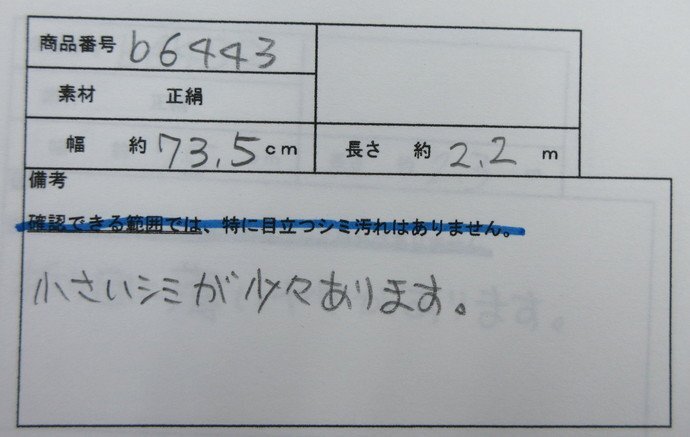 商品番号 b6443
素材 正絹
幅 約 73.5cm 長さ 約 2.2 m
備考
確認できる範囲では、特に目立つシミ汚れはありません。
小さいシミが少々あります。